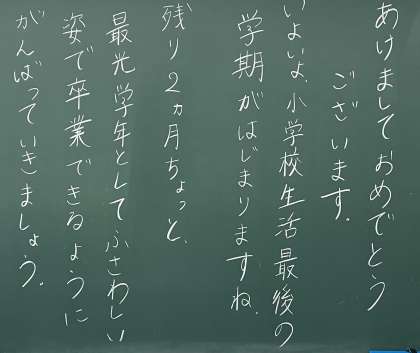 あけまして おめでとう
ございます。
いよいよ、小学校生活最後の
学期がはじまりますね。
残り2ヵ月ちょっと、
最光学年として ふさわしい
姿で卒業できるように
がんばっていきましょう。